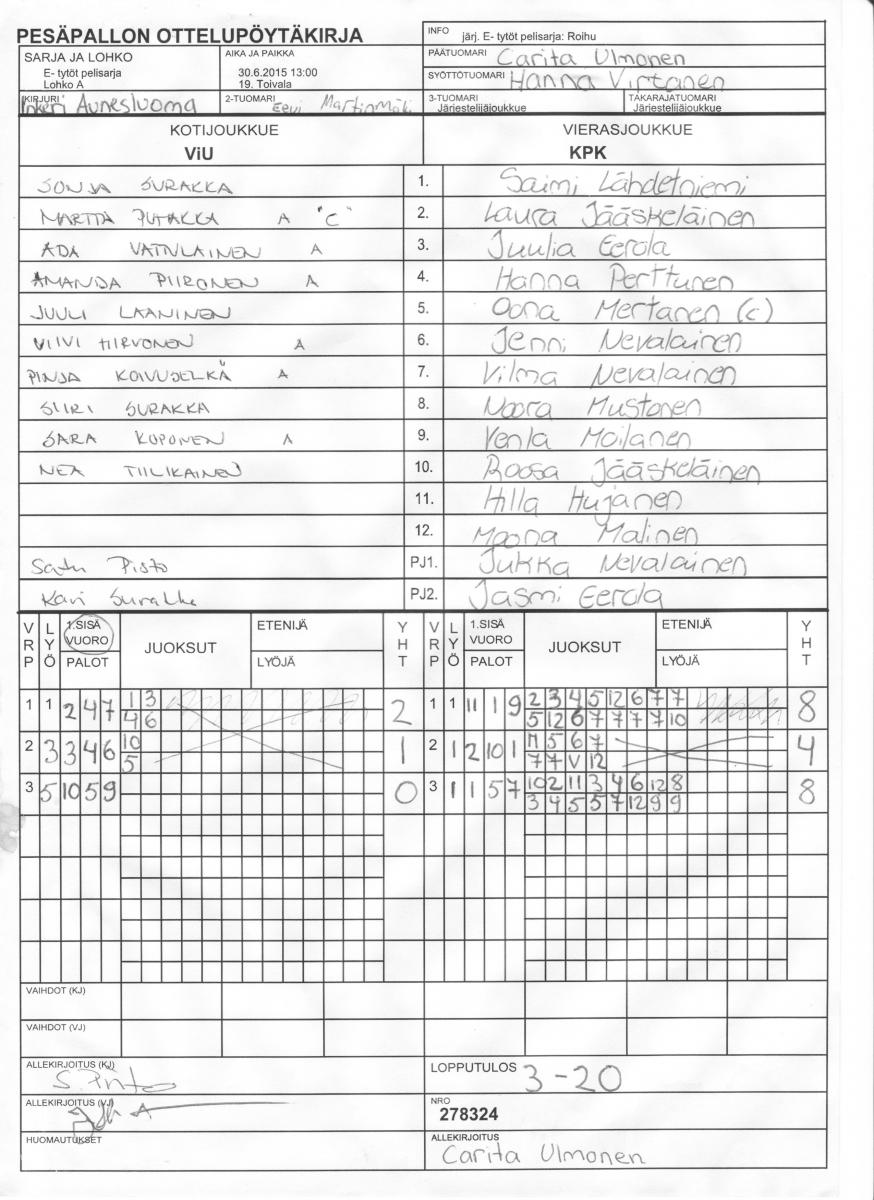 PESÄPALLON OTTELUPÖYTÄKIRJA
INFO järj. E- tytöt pelisarja: Roihu
SARJA JA LOHKO
E- tytöt pelisarja
Lohko A
AIKA JA PAIKKA
30.6.2015 13:00
19. Toivala
PÄÄTUOMARI Carita Ulmonen
SYÖTTÖTUOMARI Hanna Virtanen
KIRJURI Inkeri Aunesluoma
2-TUOMARI Eevi Martinmäki
3-TUOMARI
Järjestelijäjoukkue
TAKARAJATUOMARI
Järjestelijäjoukkue
KOTIJOUKKUE
ViU
VIERASJOUKKUE
KPK
SONJA SURAKKA 1. Saimi Lähdetniemi
MARTTA PUTAKKA A "C" 2. Laura Jääskeläinen
ADA VATULAINEN A 3. Juulia Eerola
AMANDA PIIRONEN A 4. Hanna Perttunen
JUULI LAANINEN 5. Oona Mertanen (c)
VIIVI HIRVONEN A 6. Jenni Nevalainen
PINJA KOIVUSELKÄ A 7. Vilma Nevalainen
SIIRI SURAKKA 8. Noora Mustonen
SARA KOPONEN A 9. Venla Moilanen
NEA TIILIKAINEN 10. Roosa Jääskeläinen
11. Hilla Hujanen
12. Moona Malinen
Satu Pisto PJ1. Jukka Nevalainen
Kari Surakka PJ2. Jasmi Eerola
VRP LYÖ 1.SISÄ VUORO PALOT JUOKSUT ETENIJÄ LYÖJÄ YHT VRP LYÖ 1.SISÄ VUORO PALOT JUOKSUT ETENIJÄ LYÖJÄ YHT
1 1 2 4 7 1 3 2 1 1 11 1 9 2 3 4 5 12 6 7 7 8
4 6 5 12 6 7 7 7 7 10
2 3 3 4 6 10 1 2 1 2 10 1 11 5 6 7 4
5 7 7 V 12
3 5 10 5 9 0 3 1 1 5 7 10 2 11 3 4 6 12 8 8
3 4 5 5 7 12 9 9
VAIHDOT (KJ)
VAIHDOT (VJ)
ALLEKIRJOITUS (KJ) S. Pisto
LOPPUTULOS 3 - 20
ALLEKIRJOITUS (VJ)
NRO
278324
HUOMAUTUKSET
ALLEKIRJOITUS
Carita Ulmonen